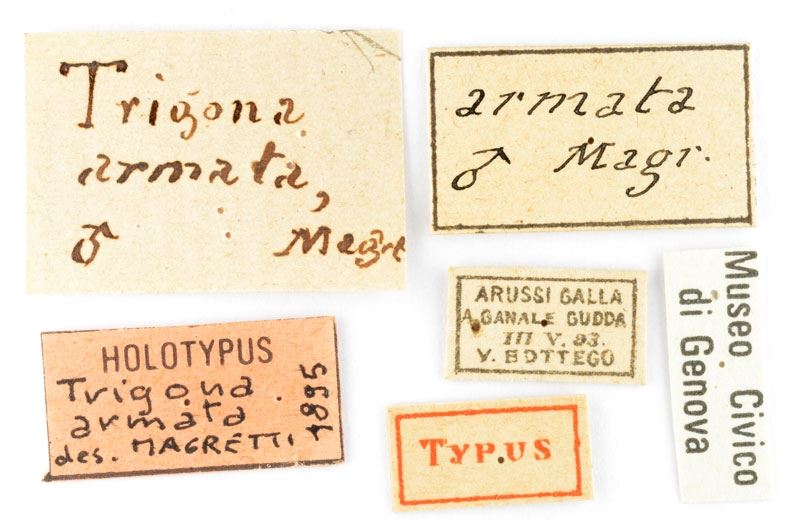 Trigona
armata,
♂ Magr
armata
♂ Magr.
ARUSSI GALLA
A.GANALE GUDDA
III V. 93.
V. BOTTEGO
Museo Civico
di Genova
HOLOTYPUS
Trigona
armata
des. MAGRETTI 1895
TYPUS